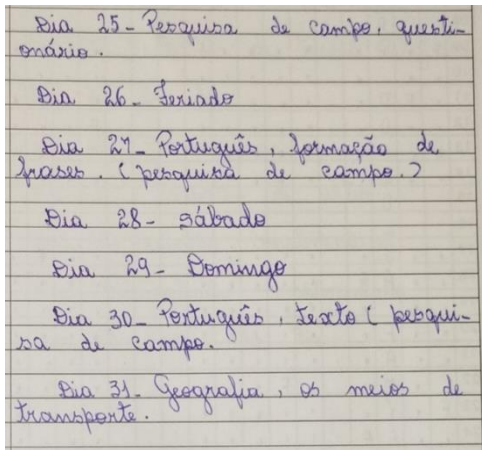 Dia 25- Pesquisa de campo, questi-
onário.
Dia 26- Feriado
Dia 27- Português, formação de
frases. (pesquisa de campo.)
Dia 28- sábado
Dia 29- Domingo
Dia 30- Português, texto ( pesqui-
sa de campo.
Dia 31- Geografia, os meios de
transporte.